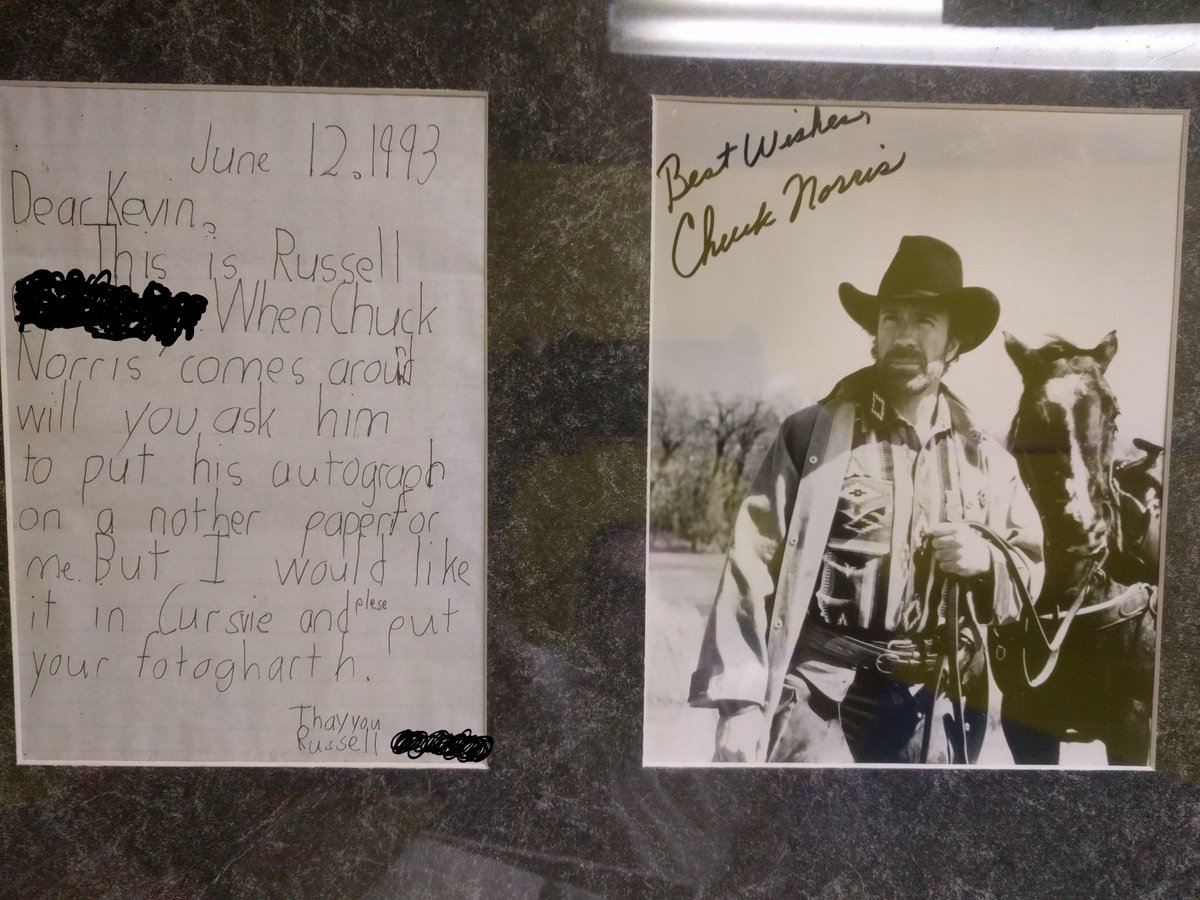 June 12, 1993
Dear Kevin,
This is Russell
When Chuck
Norris' comes around
will you ask him
to put his autograph
on a nother paper for
me. But I would like
it in Cursvie and plese put
your fotogharth.
Thayyou
Russell
Best Wishes,
Chuck Norris